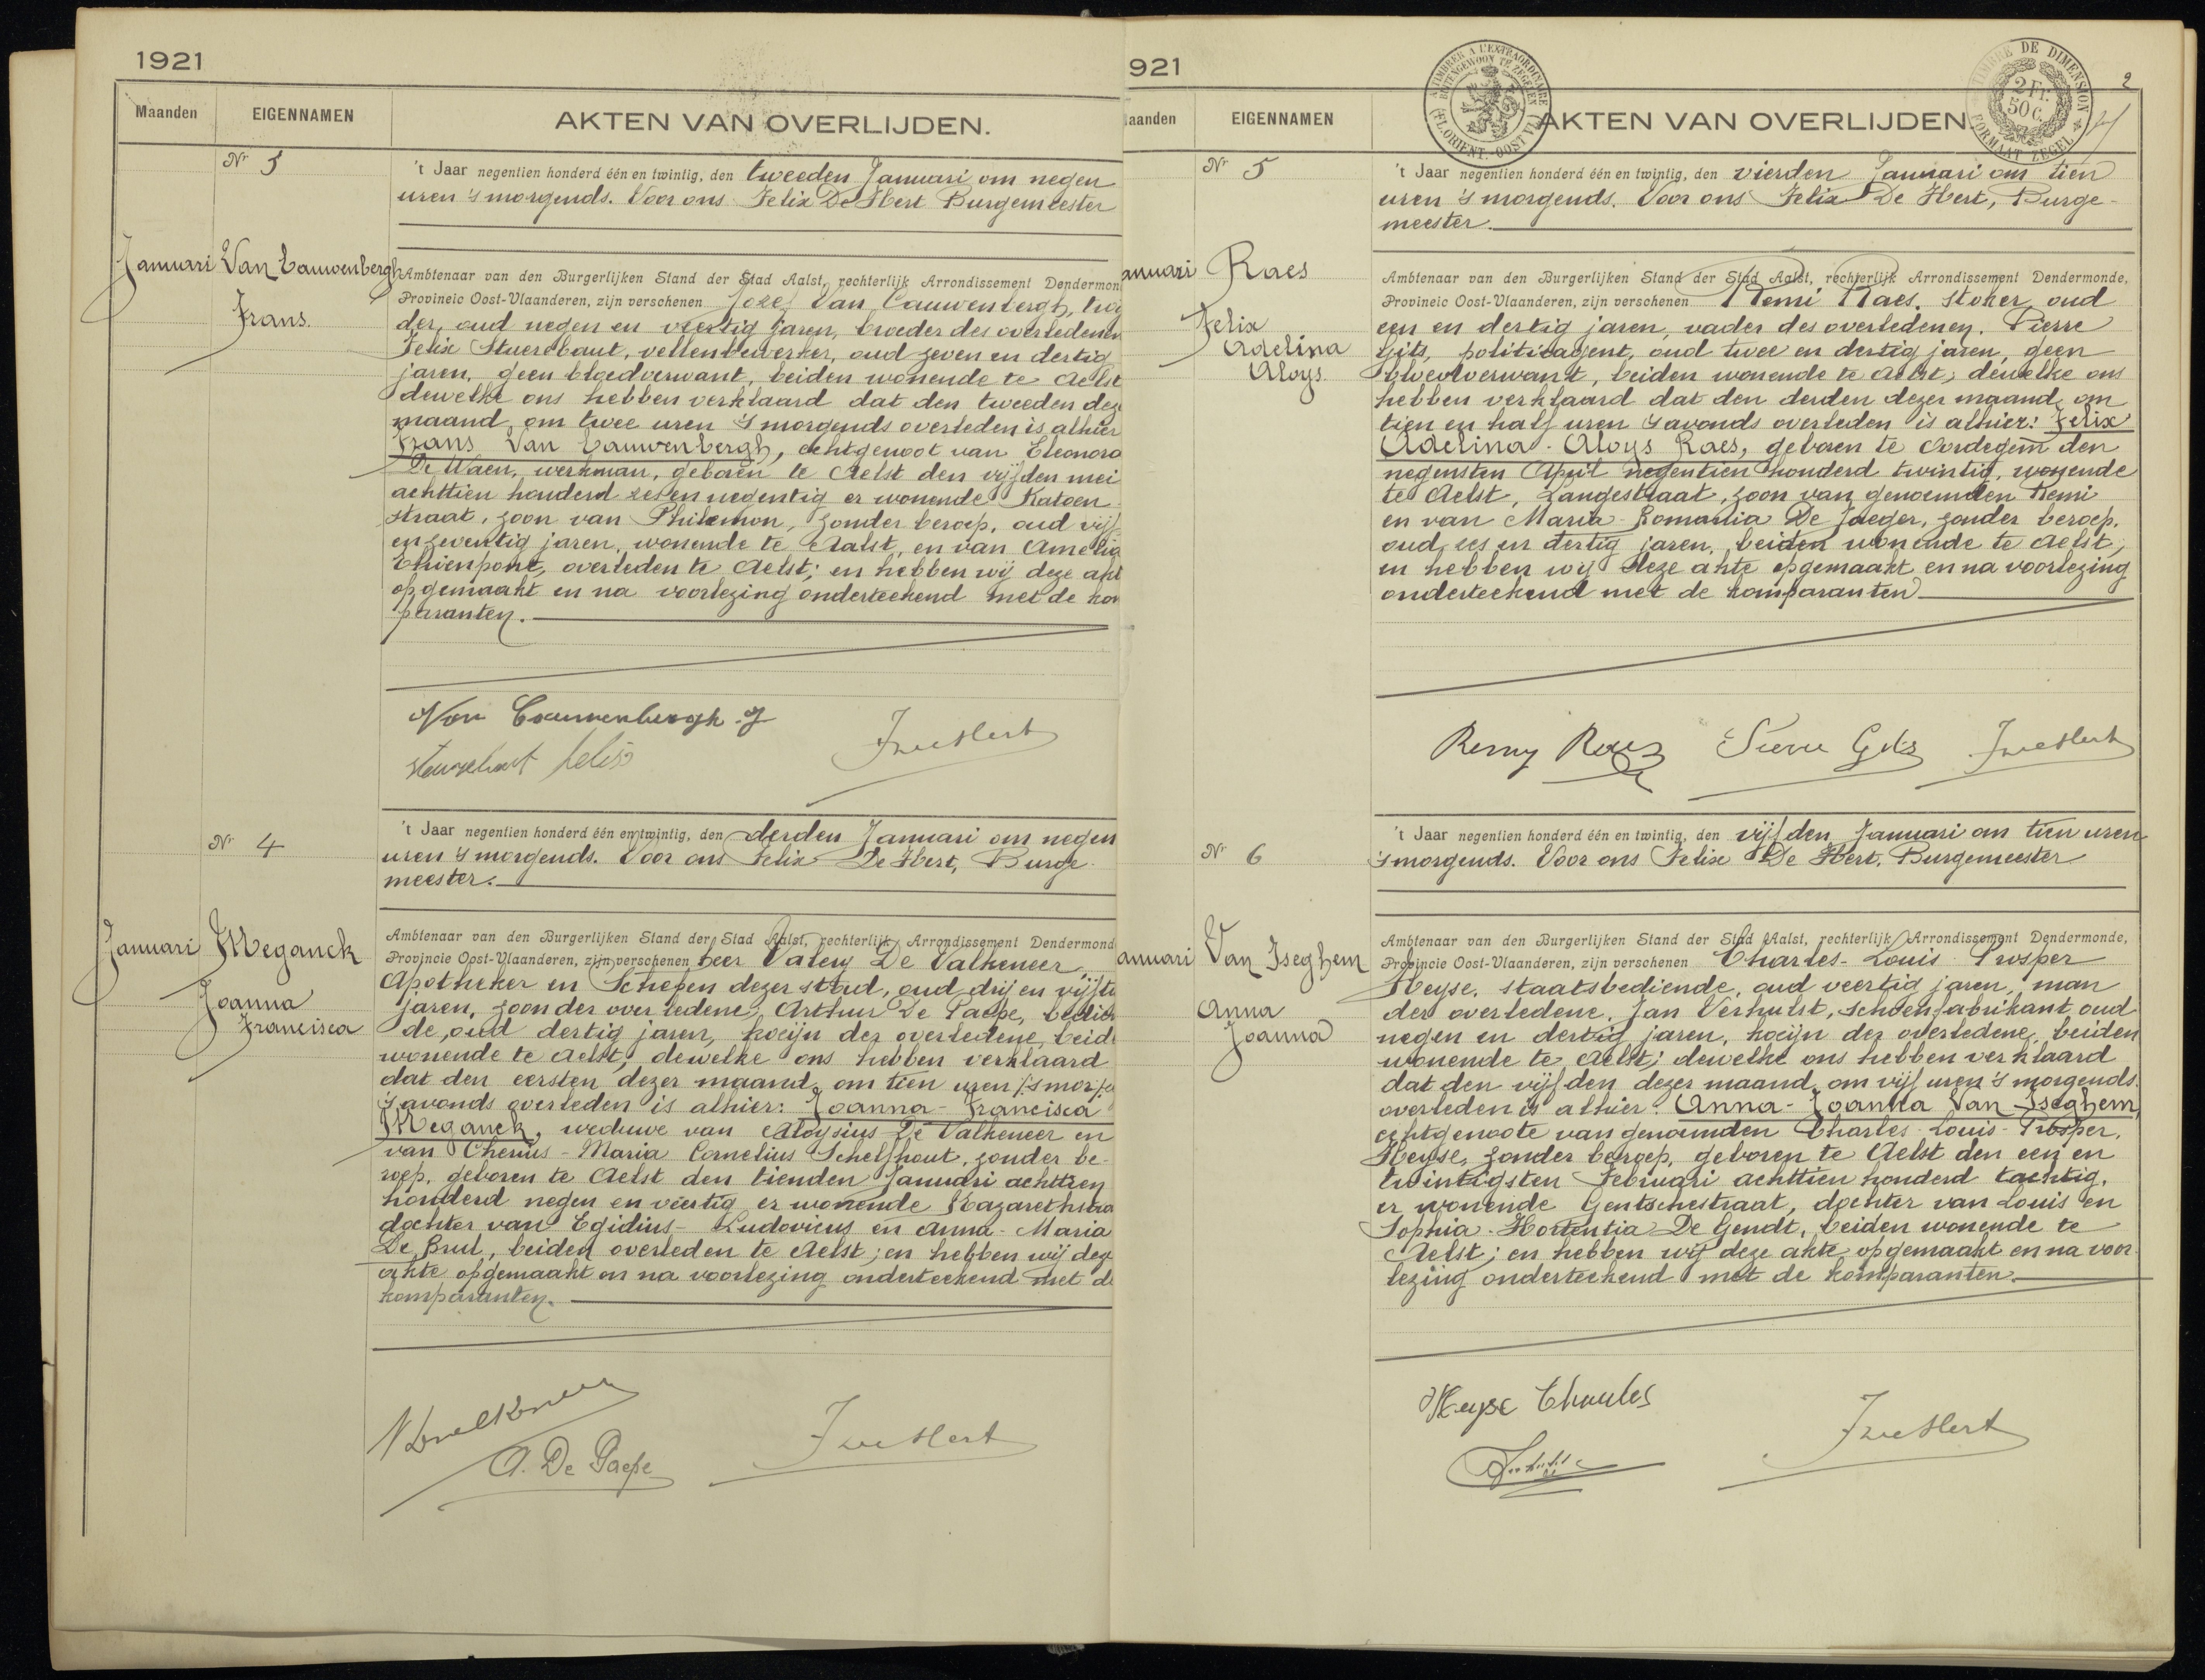 1921
Maanden
EIGENNAMEN
AKTEN VAN OVERLIJDEN.
Nr 3
't Jaar negentien honderd één en twintig, den tweeden Januari om negen
uren 's morgends. Voor ons Felix De Hert Burgemeester
Januari
Van Cauwenbergh
Frans.
Ambtenaar van den Burgerlijken Stand der Stad Aalst, rechterlijk Arrondissement Dendermon
Provincie Oost-Vlaanderen, zijn verschenen Jozef Van Cauwenbergh,
der, oud negen en veertig jaren, broeder des overledenen
Felix Stuerebaut, vellenbewerker, oud zeven en dertig
jaren, geen bloedverwant, beiden wonende te Aelst
dewelke ons hebben verklaard dat den tweeden deze
maand, om twee uren 's morgends overleden is alhier
Frans Van Cauwenbergh, echtgenoot van Eleonora
De Waen, werkman, geboren te Aelst den vijfden mei
achttien honderd zes en negentig er wonende Katoen
straat, zoon van Philemon, zonder beroep, oud vijf
en zeventig jaren, wonende te Aalst, en van Amelia
Thienpont, overleden te Aelst; en hebben wij deze akt
opgemaakt en na voorlezing onderteekend met de kom
paranten.
Van Cauwenbergh J
Felix
F De Hert
Nr 4
't Jaar negentien honderd één en twintig, den derden Januari om negen
uren 's morgends. Voor ons Felix De Hert, Burge
meester.
Januari
Meganck
Joanna
Francisca
Ambtenaar van den Burgerlijken Stand der Stad Aalst, rechterlijk Arrondissement Dendermond
Provincie Oost-Vlaanderen, zijn verschenen heer Valery De Valkeneer
Apotheker en Schepen dezer stad, oud drij en vijfti
jaren, zoon der overledene, Arthur De Paepe, bedien
de, oud dertig jaren, kozijn der overledene, beide
wonende te Aelst, dewelke ons hebben verklaard
dat den eersten dezer maand, om tien uren /: 's mor/:
's avonds overleden is alhier: Joanna-Francisca
Meganck, weduwe van Aloysius De Valkeneer en
van Cherius-Maria Cornelius Schelfhout, zonder be-
roep, geboren te Aelst den tienden Januari achttien
honderd negen en veertig er wonende Nazarethstra
dochter van Egidius-Ludovicus en Anna-Maria
De Brul, beiden overleden te Aelst; en hebben wij deze
akte opgemaakt en na voorlezing onderteekend met de
komparanten.
A. De Paepe
F De Hert
921
aanden
EIGENNAMEN
TIMBRER A L'EXTRAORDINAIRE
BUITENGEWOON TE ZEGELEN
FL. ORIENT. - OOST VL.
AKTEN VAN OVERLIJDEN.
TIMBRE DE DIMENSION
2 Fr.
50 C.
FORMAAT ZEGEL
2
Nr 5
't Jaar negentien honderd één en twintig, den vierden Januari om tien
uren 's morgends. Voor ons Felix De Hert, Burge-
meester.
anuari
Raes
Felix
Adelina
Aloys.
Ambtenaar van den Burgerlijken Stand der Stad Aalst, rechterlijk Arrondissement Dendermonde,
Provincie Oost-Vlaanderen, zijn verschenen Remi Raes, stoker, oud
een en dertig jaren, vader des overledenen. Pierre
Gits, politieagent, oud twee en dertig jaren, geen
bloedverwant, beiden wonende te Aelst; dewelke ons
hebben verklaard dat den derden dezer maand, om
tien en half uren 's avonds overleden is alhier: Felix
Adelina-Aloys Raes, geboren te Oordegem den
negensten April negentien honderd twintig, wonende
te Aelst, Langestraat, zoon van genoemden Remi
en van Maria-Romania De Jaeger, zonder beroep,
oud zes en dertig jaren, beiden wonende te Aelst;
en hebben wij deze akte opgemaakt en na voorlezing
onderteekend met de komparanten
Remy Raes
Pierre Gits
F De Hert
Nr 6
't Jaar negentien honderd één en twintig, den vijfden Januari om tien uren
's morgends. Voor ons Felix De Hert, Burgemeester
anuari
Van Iseghem
Anna
Joanna
Ambtenaar van den Burgerlijken Stand der Stad Aalst, rechterlijk Arrondissement Dendermonde,
Provincie Oost-Vlaanderen, zijn verschenen Charles-Louis Prosper
Heyse, staatsbediende, oud veertig jaren, man
der overledene, Jan Verhulst, schoenfabrikant oud
negen en dertig jaren, kozijn der overledene, beiden
wonende te Aelst; dewelke ons hebben verklaard
dat den vijfden dezer maand, om vijf uren 's morgends.
overleden is alhier: Anna-Joanna Van Iseghem,
echtgenoote van genoemden Charles-Louis-Prosper,
Heyse, zonder beroep, geboren te Aelst den een en
twintigsten Februari achttien honderd tachtig,
er wonende Gentschestraat, dochter van Louis en
Sophia-Hortentia De Gendt, beiden wonende te
Aelst; en hebben wij deze akte opgemaakt en na voor
lezing onderteekend met de komparanten.
Heyse Charles
F De Hert